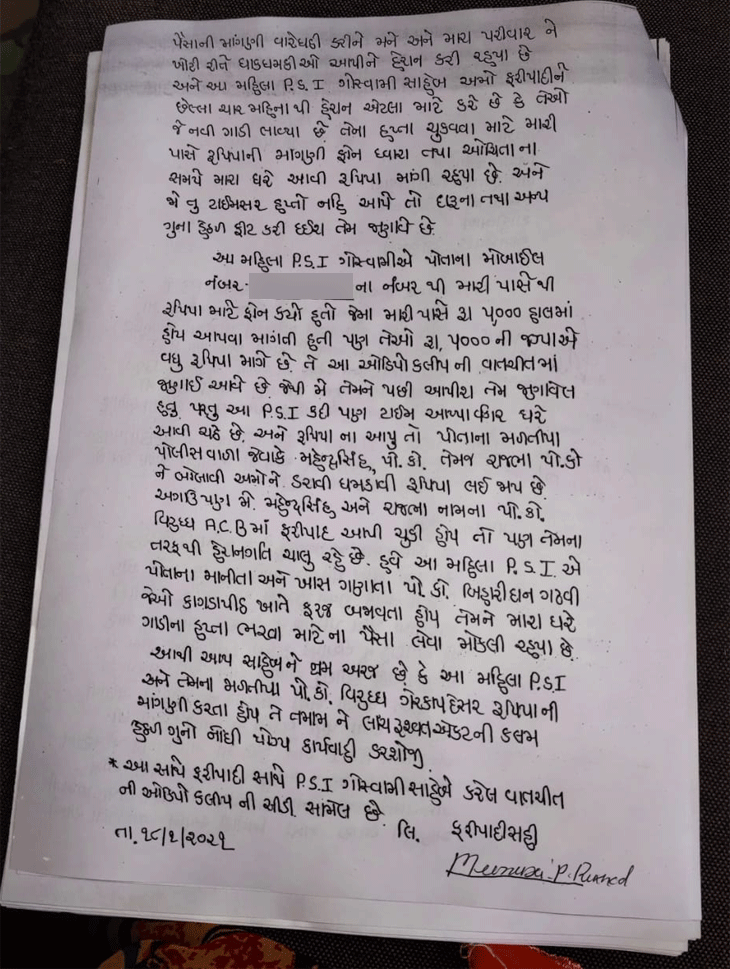 પૈસાની માંગણી વારેઘડી કરીને મને અને મારા પરીવાર ને
ખોટી રીતે ધાકધમકીઓ આપીને હેરાન કરી રહયા છે
અને આ મહિલા P.S.I ગોસ્વામી સાહેબ અમો ફરીયાદીને
છેલ્લા ચાર મહિના થી હેરાન એટલા માટે કરે છે કે તેઓ
જે નવી ગાડી લાવ્યા છે તેના હપ્તા ચુકવવા માટે મારી
પાસે રૂપિયાની માંગણી ફોન ધ્વારા તથા ઓચિતા ના
સમયે મારા ઘરે આવી રૂપિયા માંગી રહયા છે. અને
જો તુ ટાઈમસર હપ્તો નહિ આપે તો દારૂના તથા અન્ય
ગુના હેઠળ ફીટ કરી દઈશ તેમ જણાવે છે.
આ મહિલા P.S.I ગોસ્વામીએ પોતાના મોબાઈલ
નંબર- ના નંબર થી મારી પાસે થી
રૂપિયા માટે ફોન કર્યો હતો જેમા મારી પાસે રૂા ૫,૦૦૦ હાલમાં
હોય આપવા માંગતી હતી પણ તેઓ રૂા, ૫૦૦૦ ની જગ્યાએ
વધુ રૂપિયા માગે છે. તે આ ઓડિયો કલીપ ની વાતચીત માં
જણાઈ આવે છે. જેથી મેં તેમને પછી આપીશ તેમ જણાવેલ
હતુ. પરતુ આ P.S.I કદી પણ ટાઈમ આપ્યા વીગર ઘરે
આવી ચઢે છે. અને રૂપિયા ના આપુ તો પોતાના મળતીયા
પોલીસ વાળા જેવાકે મહેન્દ્રસિંહ, પો.કો. તેમજ રાજભા પો.કો
ને બોલાવી અમોને ડરાવી ધમકાવી રૂપિયા લઈ જાય છે.
અગાઉ પણ મેં મહેન્દ્રસિંહ અને રાજભા નામના પો.કો.
વિરુધ્ધ A.C.B માં ફરીયાદ આપી ચુકી હોય તો પણ તેમના
તરફ થી હેરાનગતિ ચાલુ રહે છે. હવે આ મહિલા P.S.I. એ
પોતાના માનીતા અને ખાસ ગણાતા પો.કો. બિહારીદાન ગઢવી
જેઓ કાગડાપીઠ ખાતે ફરજ બજાવતા હોય તેમને મારા ઘરે
ગાડીના હપ્તા ભરવા માટે ના પૈસા લેવા મોકલી રહયા છે.
આથી આપ સાહેબ ને નમ્ર અરજ છે કે આ મહિલા P.S.I
અને તેમના મળતીયા પો.કો. વિરુધ્ધ ગેરકાયદેસર રૂપિયાની
માંગણી કરતા હોય તે તમામ ને લાંચ રૂશ્વત એકટ ની કલમ
હેઠળ ગુનો નોંધી યોગ્ય કાર્યવાહી કરશોજી.
* આ સાથે ફરીયાદી સાથે P.S.I ગોસ્વામી સાહેબે કરેલ વાતચીત
ની ઓડિયો કલીપ ની સીડી. સામેલ છે.
લિ. ફરીયાદી સહી
તા.૧૮/૧/૨૦૨૧